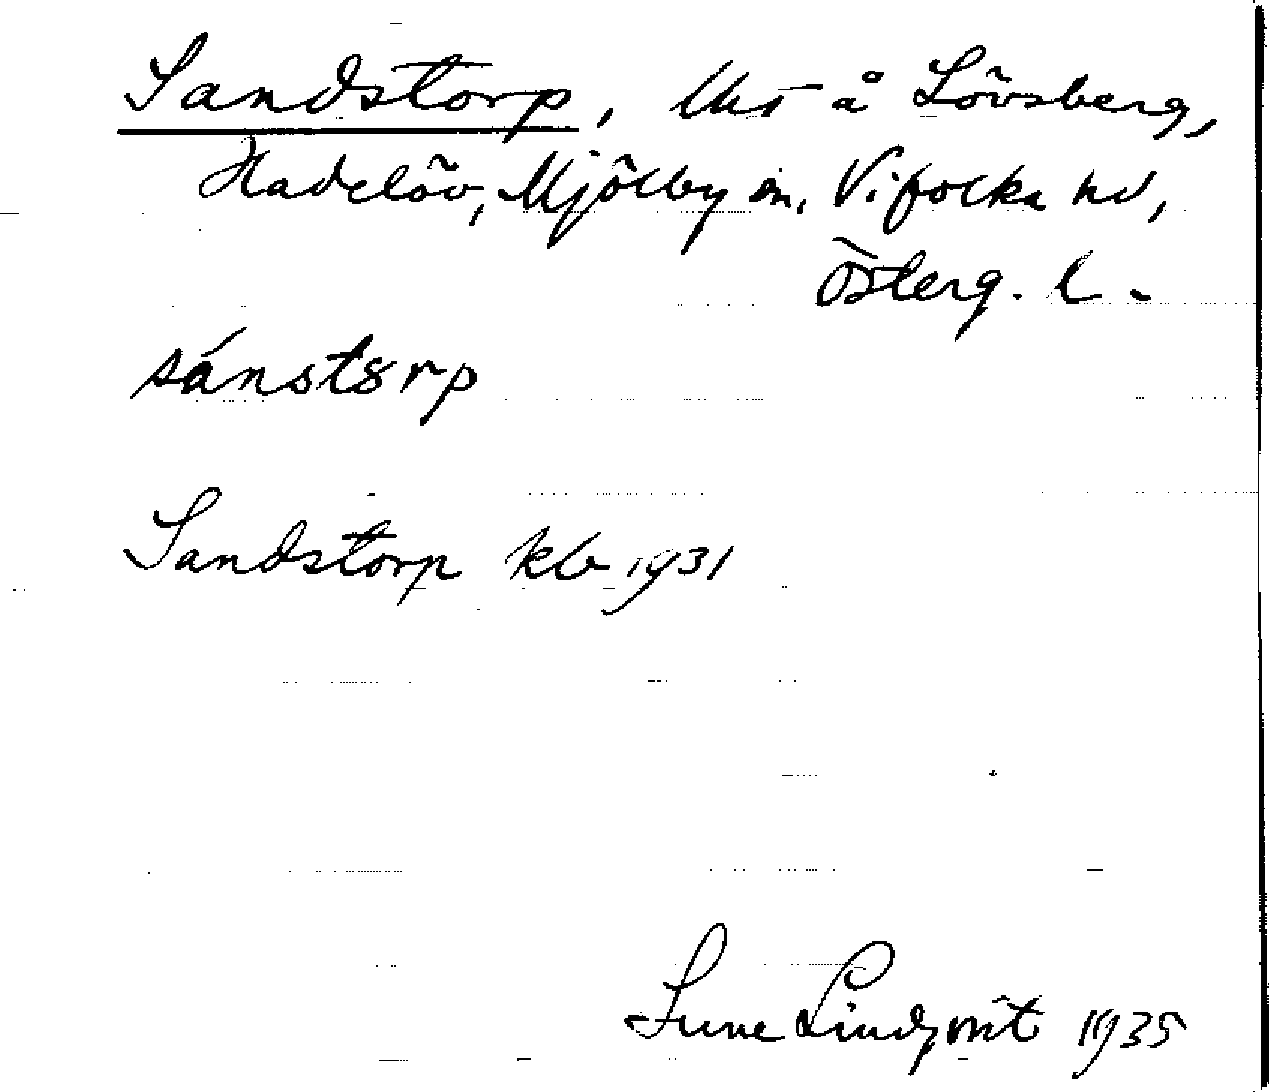 Sandstorp, lht å Lövsberg,
Hadelöv, Mjölby sn, Vifolka hd,
Österg. l.
sánstɜrp
Sandstorp kb 1931
Sune Lindqvist 1935